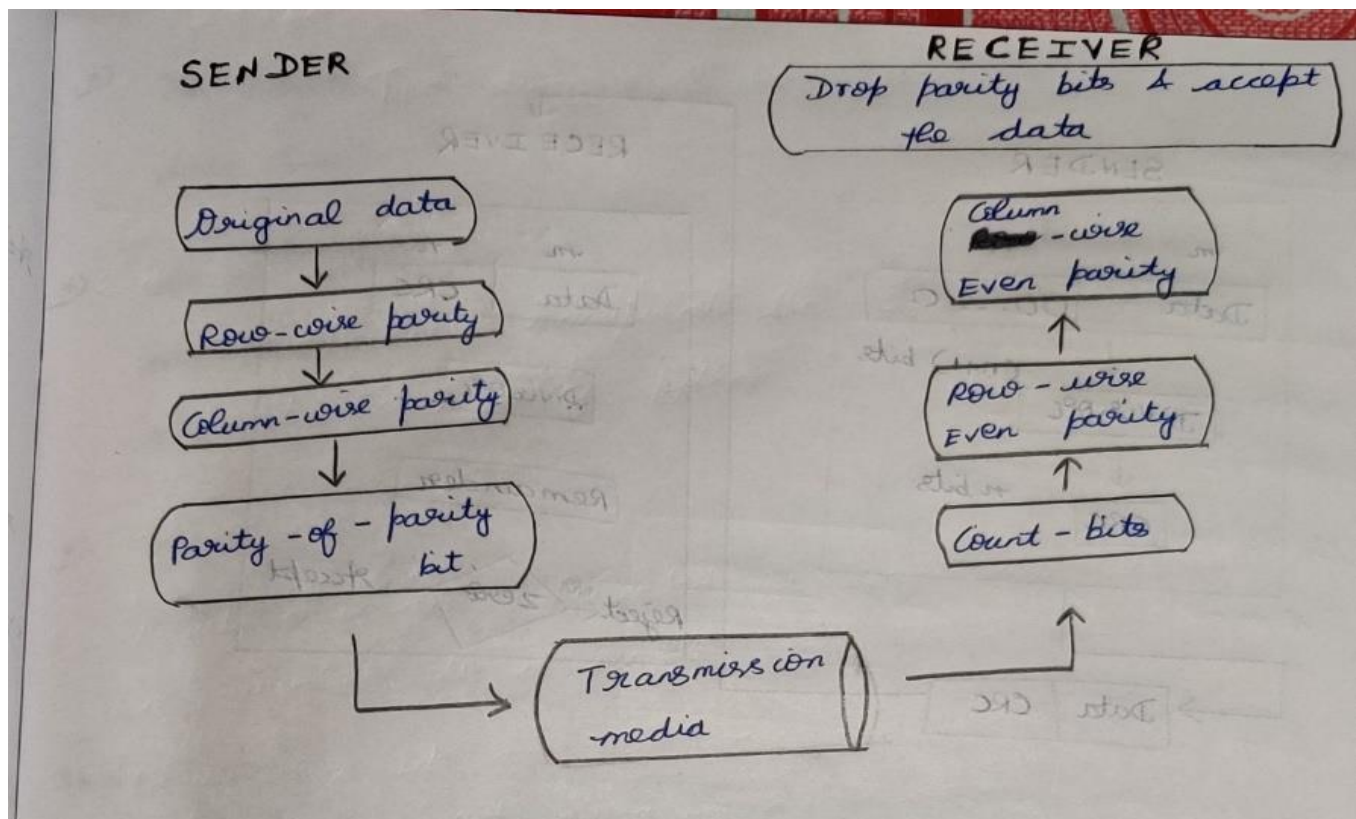 SENDER
Original data
Row-wise parity
Column-wise parity
Parity-of-parity
bit
Transmission
media
RECEIVER
Drop parity bits & accept
the data
Column
-wise
Even parity
Row-wise
Even parity
Count-bits